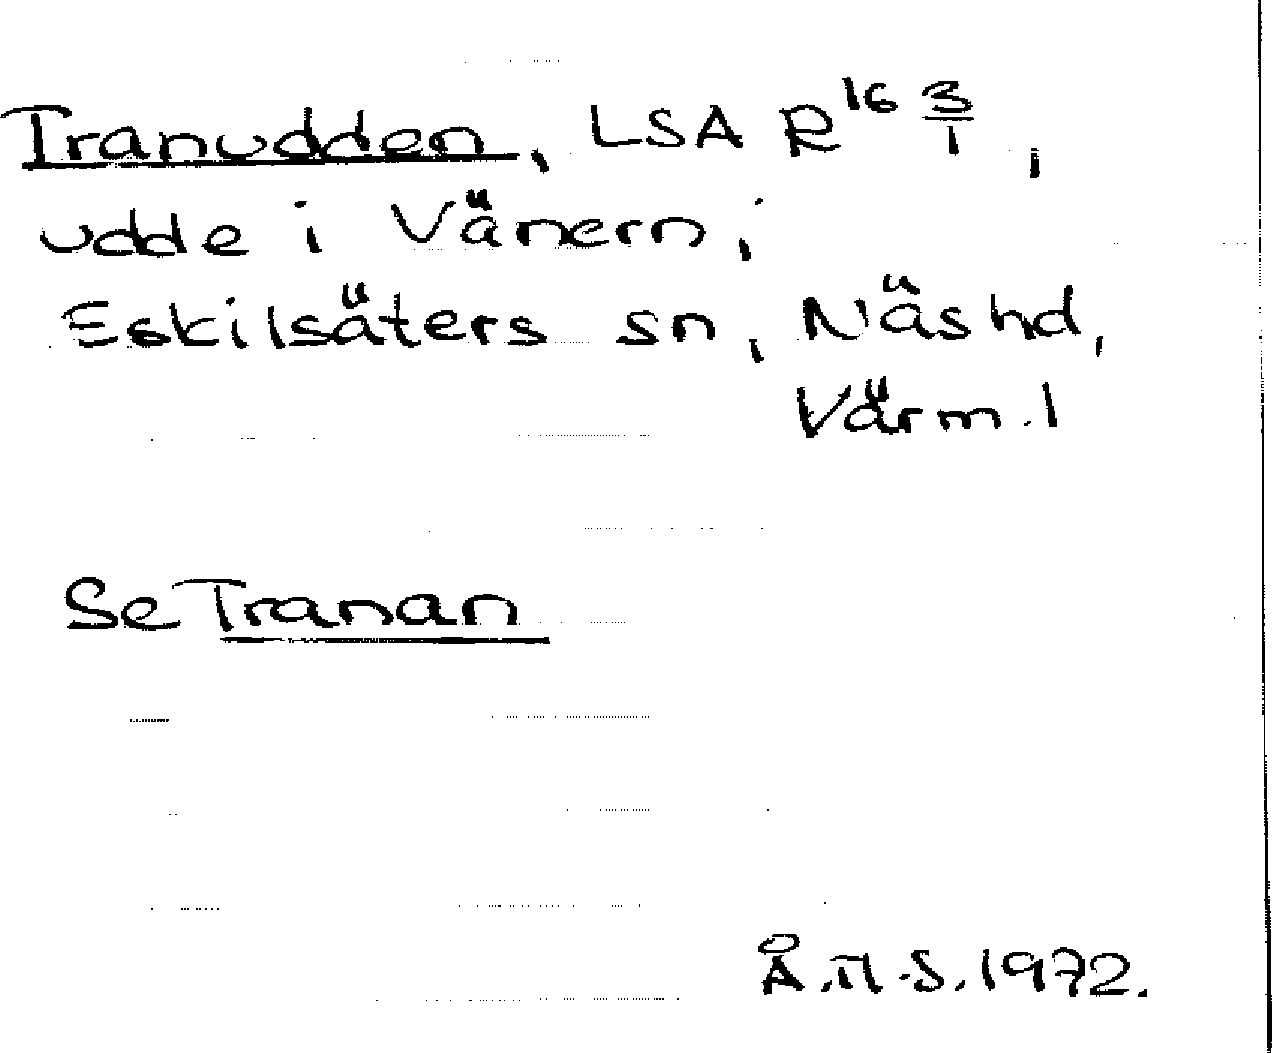 Tranudden, LSA R16 3/1,
udde i Vänern;
Eskilsäters sn, Näs hd,
Värm.l
Se Tranan
1972.